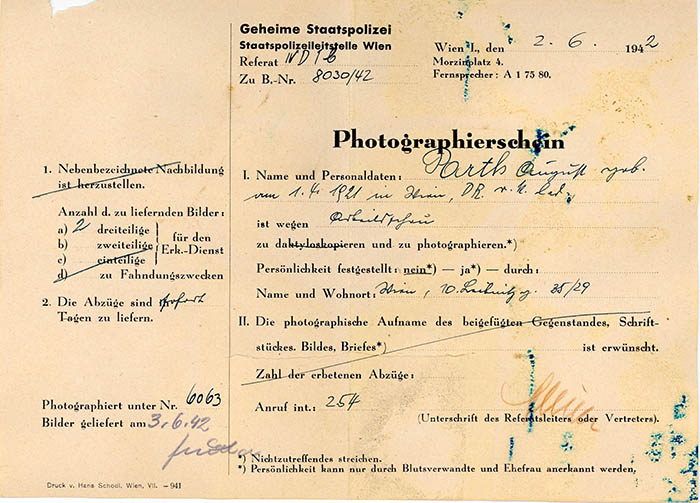 Geheime Staatspolizei
Staatspolizeileitstelle Wien
Referat IV D 1 b
Zu B.-Nr. 8030/42
Wien I., den 2. 6. 1942
Morzinplatz 4.
Fernsprecher: A 1 75 80.
Photographierschein
1. Nebenbezeichnete Nachbildung
ist herzustellen.
Anzahl d. zu liefernden Bilder:
a) 2 dreiteilige
b) zweiteilige
c) einteilige
für den
Erk.-Dienst
d) zu Fahndungszwecken
2. Die Abzüge sind sofort
Tagen zu liefern.
Photographiert unter Nr. 6063
Bilder geliefert am 3. 6. 42
I. Name und Personaldaten: Barth August geb.
am 1. 4. 1921 in Wien, DR. r. k. led.
ist wegen Arbeitsscheu
zu daktyloskopieren und zu photographieren.*)
Persönlichkeit festgestellt: nein*) — ja*) — durch:
Name und Wohnort: Wien, 10. Leibnitzg. 35/29
II. Die photographische Aufname des beigefügten Gegenstandes, Schrift-
stückes. Bildes, Briefes*) ist erwünscht.
Zahl der erbetenen Abzüge:
Anruf int.: 254
(Unterschrift des Referatsleiters oder Vertreters).
*) Nichtzutreffendes streichen.
*) Persönlichkeit kann nur durch Blutsverwandte und Ehefrau anerkannt werden,
Druck v. Hans Schodl. Wien, VII. — 941